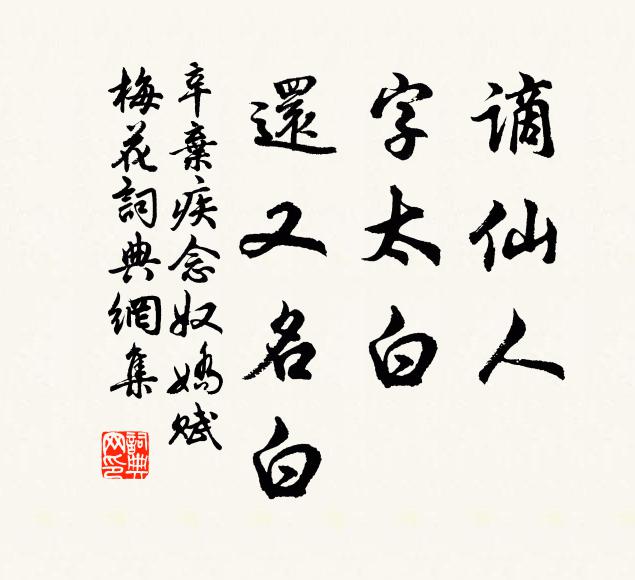 謫仙人
字太白
還又名白
辛棄疾念奴嬌賦
梅花詞典網集
詞典
网印